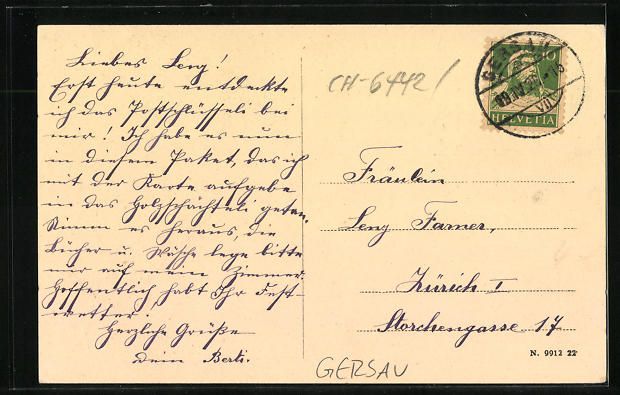 Liebes Leny!
Erst heute entdeckte
ich das Postschlüsseli bei
mir! Ich habe es nun
in diesem Paket, das ich
mit der Karte aufgebe
in das Holzschächteli getan.
Nimm es heraus, die
Bücher u. Wäsche lege bitte
mir auf mein Zimmer.
Hoffentlich habt Ihr Fest-
wetter.
Herzliche Grüße
Dein Berti.
CH-6442/
GERSAU
10
HELVETIA
VII
Fräulein
Leny Farner,
Zürich I
Storchengasse 17
N. 9912 22
GERSAU